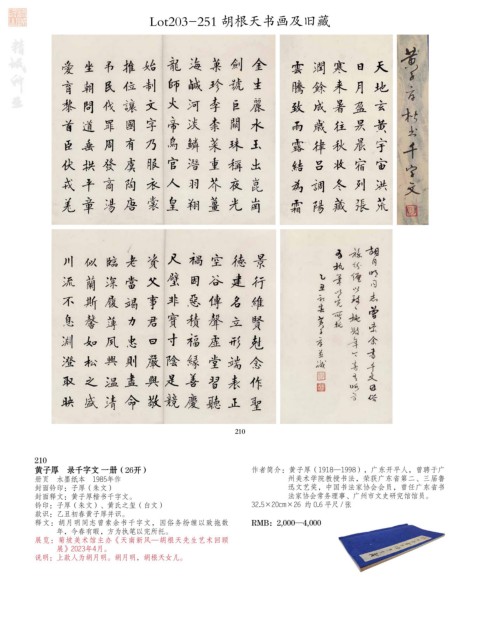 Lot203-251 胡根天书画及旧藏
天地玄黄宇宙洪荒
日月盈昃辰宿列張
寒来暑往秋收冬藏
潤餘成歲律吕調陽
雲騰致雨露結為霜
金生麗水玉出崑崗
劍號巨闕珠稱夜光
菓珍李柰菜重芥薑
海鹹河淡鱗潜羽翔
龍師火帝鳥官人皇
始制文字乃服衣裳
推位讓國有虞陶唐
弔民伐罪周發商湯
坐朝問道垂拱平章
愛育黎首臣伏戎羌
景行維賢剋念作聖
德建名立形端表正
空谷傳聲虚堂習聽
禍因惡積福緣善慶
尺璧非寶寸陰是競
資父事君曰嚴與敬
孝當竭力忠則盡命
臨深履薄夙興温凊
似蘭斯馨如松之盛
川流不息淵澄取映
210
210
黄子厚 录千字文一册（26开）
册页 水墨纸本 1985年作
封面钤印：子厚（朱文）
封面释文：黄子厚楷书千字文。
钤印：子厚（朱文）、黄氏之玺（白文）
款识：乙丑初春黄子厚并识。
释文：胡月明同志曾索余书千字文，因俗务纷缠以致拖数
年，今春有暇，方为执笔以完所托。
展览：荔坡美术馆主办《天南新风—胡根天先生艺术回顾
展》2023年4月。
说明：上款人为胡月明。胡月明，胡根天女儿。
作者简介：黄子厚（1918—1998），广东开平人。曾聘于广
州美术学院教授书法，荣获广东省第二、三届鲁
迅文艺奖，中国书法家协会会员，曾任广东省书
法家协会常务理事，广州市文史研究馆馆员。
32.5×20cm×26 约 0.6 平尺/张
RMB: 2,000—4,000